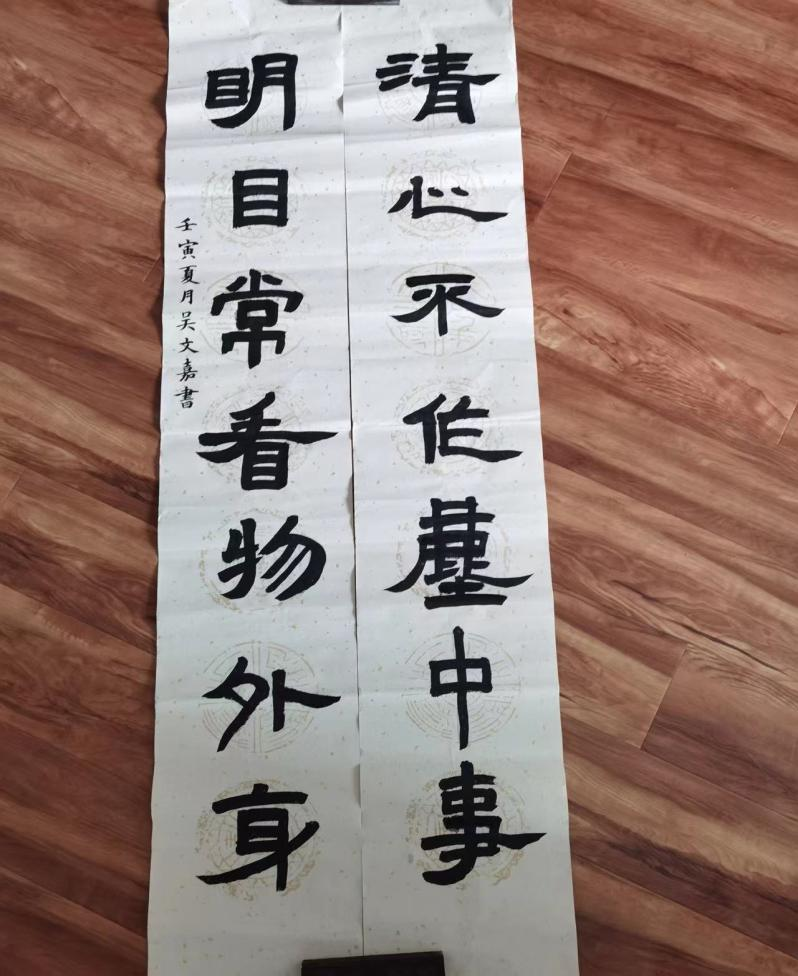 清心不作尘中事
明目常看物外身
壬寅夏月吴文嘉書